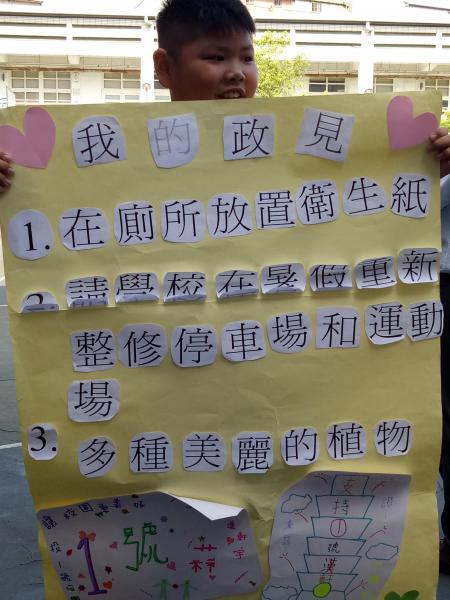 我的政見
1. 在廁所放置衛生紙
2. 請學校在暑假重新
整修停車場和運動
場
3. 多種美麗的植物
讓校園更美好
投1號
1號
支
持
①
號